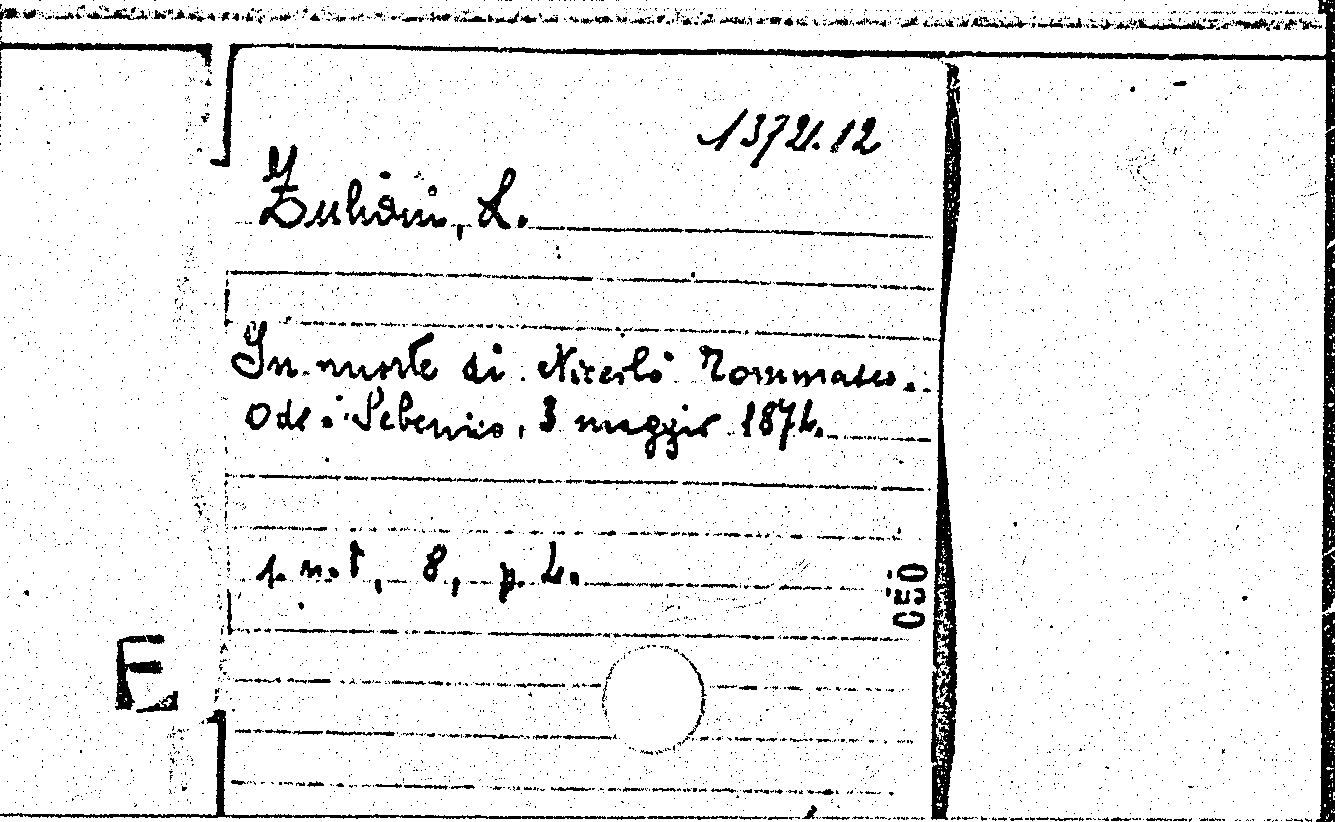 13721.12
Zuliani, L.
In morte di Niccolò Tommaseo.
Ode. Sebenico, 3 maggio 1874.
s. n. t., 8, p. 4.
050
E